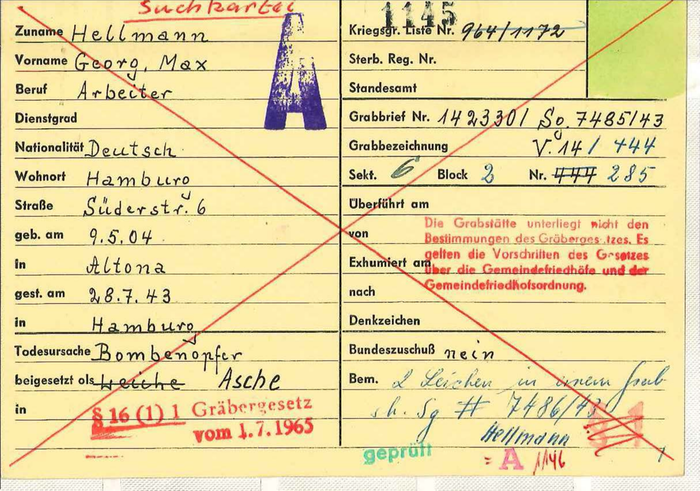 Suchkartei
1145
Zuname Hellmann
Vorname Georg, Max
Beruf Arbeiter
Dienstgrad
Nationalität Deutsch
Wohnort Hamburg
Straße Süderstr. 6
geb. am 9.5.04
in Altona
gest. am 28.7.43
in Hamburg
Todesursache Bombenopfer
beigesetzt als Leiche Asche
in
§ 16 (1) 1 Gräbergesetz
vom 1.7.1965
A
Kriegsgr. Liste Nr. 964/1172
Sterb. Reg. Nr.
Standesamt
Grabbrief Nr. 1423301 Sg. 7485/43
Grabbezeichnung V. 14 / 444
Sekt. 6 Block 2 Nr. 444 285
Überführt am
von
Exhumiert am
nach
Die Grabstätte unterliegt nicht den
Bestimmungen des Gräbergesetzes. Es
gelten die Vorschriften des Gesetzes
über die Gemeindefriedhöfe und der
Gemeindefriedhofsordnung.
Denkzeichen
Bundeszuschuß nein
Bem. 2 Leichen in einem Grab
sh. Sg # 7486/43
Hellmann
geprüft
= A 1146